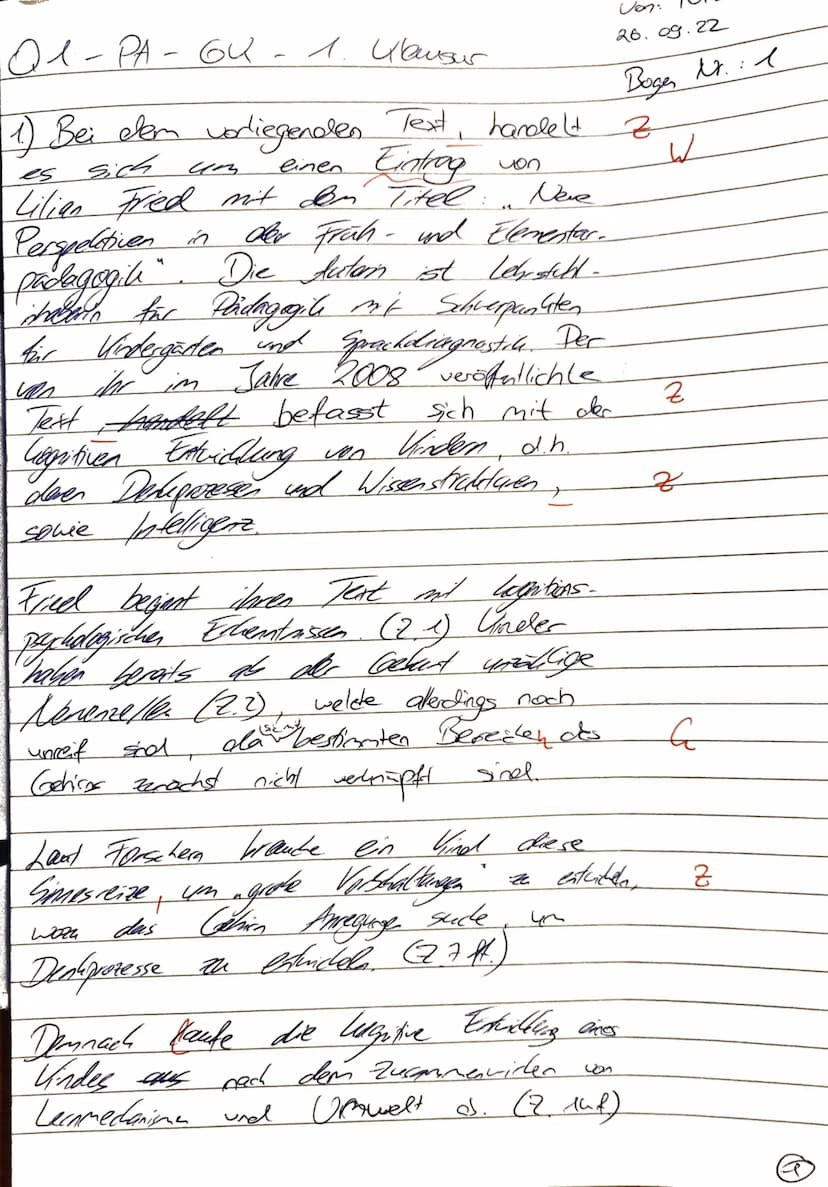 Von:
26.09.22
Q1 - PA - GK - 1. Klausur
Bogen Nr.: 1
1) Bei dem vorliegenden Text, handelt Z
es sich um einen Eintrag von W
Lilian Fried mit dem Titel: „Neue
Perspektiven in der Früh- und Elementar-
pädagogik". Die Autorin ist Lehrstuhl-
inhaberin für Pädagogik mit Schwerpunkten
für Kindergärten und Sprachdiagnostik. Der
von ihr im Jahre 2008 veröffentlichte
Text, handelt befasst sich mit der Z
kognitiven Entwicklung von Kindern, d.h.
deren Denkprozesen und Wissenstrukturen, Z
sowie Intelligenz.
Fried beginnt ihren Text mit kognitions-
psychologischen Erkenntnissen. (Z.1) Kinder
haben bereits ab der Geburt unzählige
Nervenzellen (Z.2), welche allerdings noch
unreif sind, da bestimmten Bereichen des G
Gehirns zunächst nicht verknüpft sind.
Laut Forschern brauche ein Kind diese
Sinnesreize, um „grobe Vorschaltungen" zu entwickeln, Z
wozu das Gehirn Anregungen suche, um
Denkprozesse zu entwickeln. (Z.7 ff.)
Demnach laufe die kognitive Entwicklung eines
Kindes aus nach dem Zusammenwirken von
Lernmechanismen und Umwelt ab. (Z. 14f.)
1